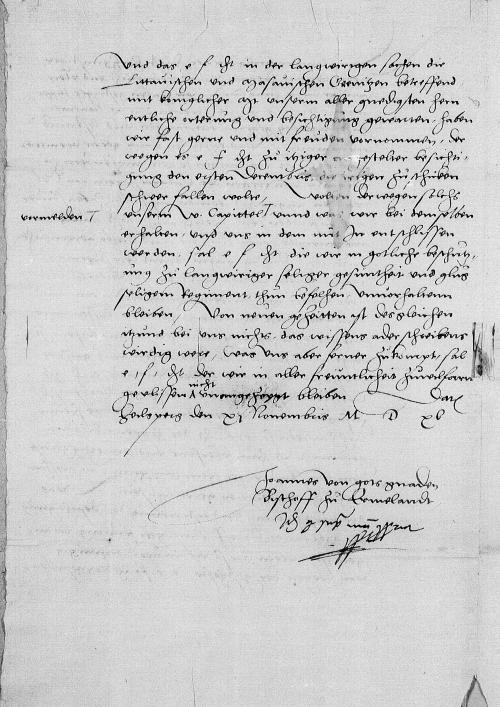 Vnd das e f cht in der langwirigen sachen die
Littauischen vnd Masauischen Grenitzen betreffend
mit koniglicher Mt vnserm aller gnedigsten hern
entliche orterung vnd besichtigung gewarten, haben
wir fast gerne vnd mit freuden vornommen, der
wegen es e f cht zu itziger besichti-
gung den ersten Decembris, zuschiben
schwer fallen wolte, derwegen solchs
vormelden
vnserm w Capittel vnnd was wir bei denselben
erhalten, vnd vns in dem mit Jn entschlissen
werden, sal e f cht die wir in gotliche beschutz-
ung zu langwiriger seliger gesuntheit vnd glug
seligem Regiment thun befelhen, vnuorhalten
bleiben, Von neuen gezeitten ist desgleichen
itzund bei vns nichts, das wissens ader schreibens
wirdig were, Was vns aber ferner zukompt, sal
e, f, cht der wir in aller freuntlicheit zuwilfaren
geulissen nicht bleiben Dat
Heilsperg den xj Nouembris M D xl
Joannes von gots gnaden
Bischoff zu Ermelandt